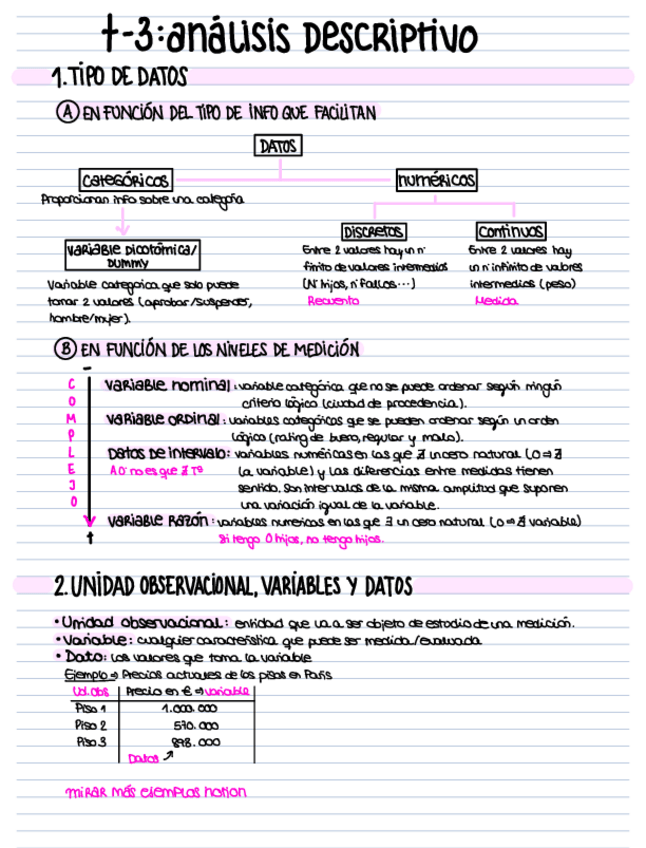 t-3: análisis Descriptivo
1. TIPO DE DATOS
A EN FUNCIÓN DEL TIPO DE INFO QUE FACILITAN
DATOS
categóricos
numéricos
Proporcionan info sobre una categoría
Variable Dicotómica/
Dummy
Discretos
Continuos
Variable categorica que solo puede
tomar 2 valores (aprobar/suspender,
hombre/mujer).
Entre 2 valores hay un nº
finito de valores intermedios
(Nº hijos, nº fallos...)
Recuento
Entre 2 valores hay
un nº infinito de valores
intermedios (peso)
Medida
B EN FUNCIÓN DE LOS NIVELES DE MEDICIÓN
-
COMPLEJO
+
Variable nominal: variable categórica que no se puede ordenar según ningún
criterio lógico (ciudad de procedencia).
Variable ordinal: variables categóricas que se pueden ordenar según un orden
lógico (rating de bueno, regular y malo).
Datos de intervalo: variables numéricas en las que ∄ un cero natural (0 ⇒ ∄
A 0º no es que ∄ Tª
la variable) y las diferencias entre medidas tienen
sentido. Son intervalos de la misma amplitud que suponen
una variación igual de la variable.
Variable Razón: variables numericas en las que ∃ un cero natural (0 ⇒ ∄ variable)
Si tengo 0 hijos, no tengo hijos.
2. UNIDAD OBSERVACIONAL, VARIABLES Y DATOS
• Unidad observacional: entidad que va a ser objeto de estudio de una medición.
• Variable: cualquier característica que puede ser medida/evaluada
• Dato: los valores que toma la variable
Ejemplo ⇒ Precios actuales de los pisos en París
Ud. obs Precio en € ⇒ variable
Piso 1 1.000.000
Piso 2 570.000
Piso 3 898.000
Datos ↗
mirar más ejemplos notion